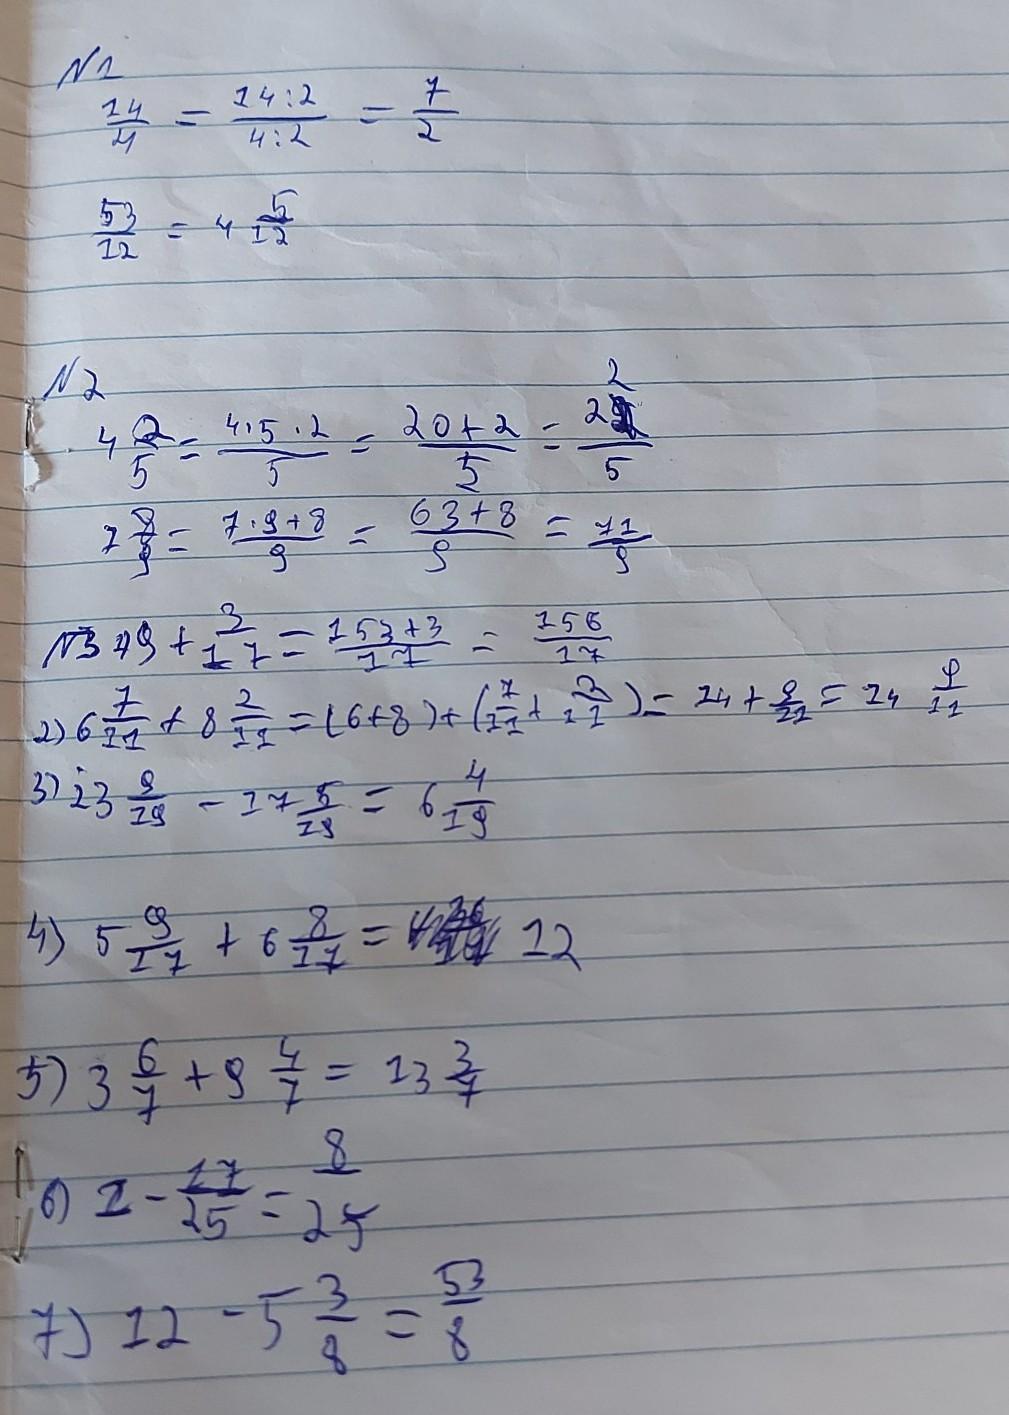 N1
14/4 = 14:2/4:2 = 7/2
53/12 = 4 5/12
N2
4 2/5 = 4·5·2/5 = 20+2/5 = 22/5
7 8/9 = 7·9+8/9 = 63+8/9 = 71/9
N3 9 + 3/17 = 153+3/17 = 156/17
2) 6 7/11 + 8 2/11 = (6+8)+(7/11 + 2/11) = 14 + 9/11 = 14 9/11
3) 23 9/19 - 17 5/19 = 6 4/19
4) 5 9/17 + 6 8/17 = 12
5) 3 6/7 + 9 4/7 = 13 3/7
6) 1 - 17/25 = 8/25
7) 12 - 5 3/8 = 53/8